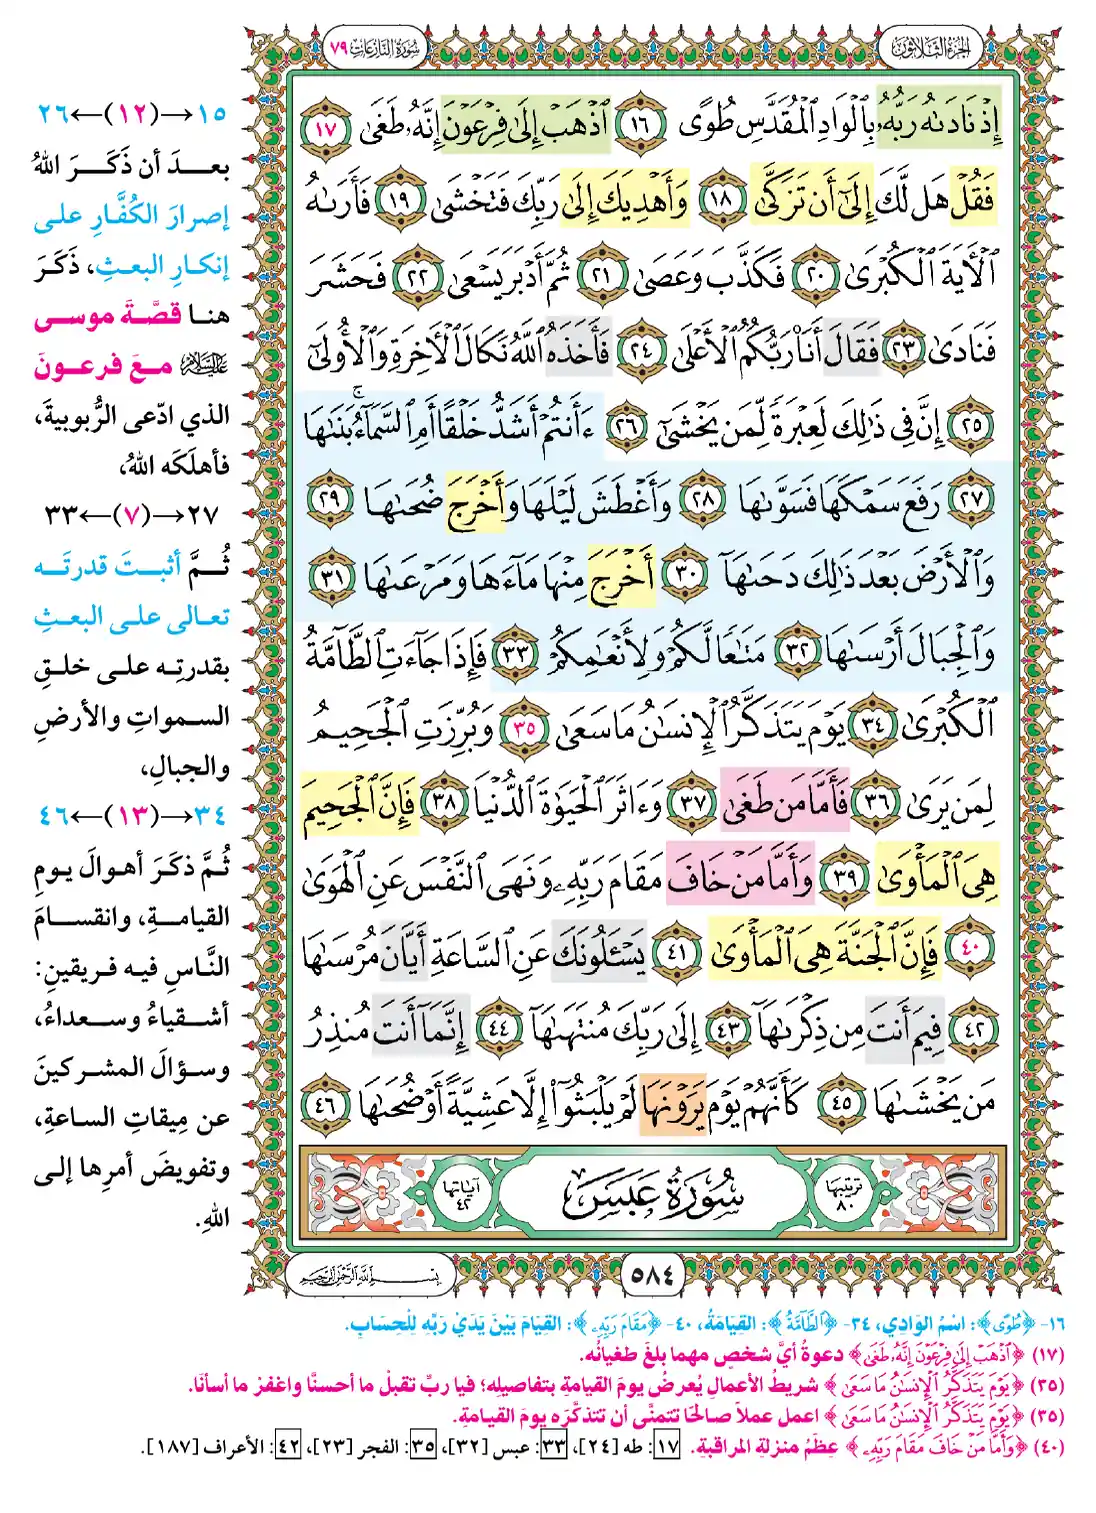 الجزء الثلاثون
سورة النازعات ٧٩
إِذْ نَادَىٰهُ رَبُّهُۥ بِٱلْوَادِ ٱلْمُقَدَّسِ طُوًى ١٦ ٱذْهَبْ إِلَىٰ فِرْعَوْنَ إِنَّهُۥ طَغَىٰ ١٧
فَقُلْ هَل لَّكَ إِلَىٰٓ أَن تَزَكَّىٰ ١٨ وَأَهْدِيَكَ إِلَىٰ رَبِّكَ فَتَخْشَىٰ ١٩ فَأَرَىٰهُ
ٱلْـَٔايَةَ ٱلْكُبْرَىٰ ٢٠ فَكَذَّبَ وَعَصَىٰ ٢١ ثُمَّ أَدْبَرَ يَسْعَىٰ ٢٢ فَحَشَرَ
فَنَادَىٰ ٢٣ فَقَالَ أَنَا۠ رَبُّكُمُ ٱلْأَعْلَىٰ ٢٤ فَأَخَذَهُ ٱللَّهُ نَكَالَ ٱلْـَٔاخِرَةِ وَٱلْأُولَىٰٓ
٢٥ إِنَّ فِى ذَٰلِكَ لَعِبْرَةً لِّمَن يَخْشَىٰٓ ٢٦ ءَأَنتُمْ أَشَدُّ خَلْقًا أَمِ ٱلسَّمَآءُ ۚ بَنَىٰهَا
٢٧ رَفَعَ سَمْكَهَا فَسَوَّىٰهَا ٢٨ وَأَغْطَشَ لَيْلَهَا وَأَخْرَجَ ضُحَىٰهَا ٢٩
وَٱلْأَرْضَ بَعْدَ ذَٰلِكَ دَحَىٰهَآ ٣٠ أَخْرَجَ مِنْهَا مَآءَهَا وَمَرْعَىٰهَا ٣١
وَٱلْجِبَالَ أَرْسَىٰهَا ٣٢ مَتَٰعًا لَّكُمْ وَلِأَنْعَٰمِكُمْ ٣٣ فَإِذَا جَآءَتِ ٱلطَّآمَّةُ
ٱلْكُبْرَىٰ ٣٤ يَوْمَ يَتَذَكَّرُ ٱلْإِنسَٰنُ مَا سَعَىٰ ٣٥ وَبُرِّزَتِ ٱلْجَحِيمُ
لِمَن يَرَىٰ ٣٦ فَأَمَّا مَن طَغَىٰ ٣٧ وَءَاثَرَ ٱلْحَيَوٰةَ ٱلدُّنْيَا ٣٨ فَإِنَّ ٱلْجَحِيمَ
هِىَ ٱلْمَأْوَىٰ ٣٩ وَأَمَّا مَنْ خَافَ مَقَامَ رَبِّهِۦ وَنَهَى ٱلنَّفْسَ عَنِ ٱلْهَوَىٰ
٤٠ فَإِنَّ ٱلْجَنَّةَ هِىَ ٱلْمَأْوَىٰ ٤١ يَسْـَٔلُونَكَ عَنِ ٱلسَّاعَةِ أَيَّانَ مُرْسَىٰهَا
٤٢ فِيمَ أَنتَ مِن ذِكْرَىٰهَآ ٤٣ إِلَىٰ رَبِّكَ مُنتَهَىٰهَآ ٤٤ إِنَّمَآ أَنتَ مُنذِرُ
مَن يَخْشَىٰهَا ٤٥ كَأَنَّهُمْ يَوْمَ يَرَوْنَهَا لَمْ يَلْبَثُوٓا۟ إِلَّا عَشِيَّةً أَوْ ضُحَىٰهَا ٤٦
ترتيبها ٨٠
سُورَةُ عَبَسَ
آياتها ٤٢
٥٨٤
بسم الله الرحمن الرحيم
١٥→(١٢)←٢٦
بعـدَ أن ذَكَـرَ اللهُ
إصرارَ الكُفَّارِ على
إنكارِ البعثِ، ذَكَرَ
هنا قصَّةَ موسى
عليه السلام مـعَ فرعـونَ
الذي ادّعى الرُّبوبيةَ،
فأهلَكَه اللهُ،
٢٧→(٧)←٣٣
ثُـمَّ أثبـتَ قدرتَـه
تعالى على البعثِ
بقدرتِه على خلقِ
السمواتِ والأرضِ
والجبالِ،
٣٤→(١٣)←٤٦
ثُمَّ ذكَرَ أهوالَ يومِ
القيامةِ، وانقسامَ
النَّاسِ فيه فريقينِ:
أشقياءُ وسعداءُ،
وسؤالَ المشركينَ
عن مِيقاتِ الساعةِ،
وتفويضَ أمرِها إلى
اللهِ.
١٦- ﴿طُوًى﴾: اسْمُ الوَادِي، ٣٤- ﴿ٱلطَّآمَّةُ﴾: القِيَامَةُ، ٤٠- ﴿مَقَامَ رَبِّهِۦ﴾: القِيَامَ بَيْنَ يَدَيْ رَبِّهِ لِلْحِسَابِ.
(١٧) ﴿ٱذْهَبْ إِلَىٰ فِرْعَوْنَ إِنَّهُۥ طَغَىٰ﴾ دعوةُ أيَّ شخصٍ مهما بلغَ طغيانُه.
(٣٥) ﴿يَوْمَ يَتَذَكَّرُ ٱلْإِنسَٰنُ مَا سَعَىٰ﴾ شريطُ الأعمالِ يُعرضُ يومَ القيامةِ بتفاصيلِه؛ فيا ربِّ تقبلْ ما أحسنَّا واغفرْ ما أسأنَا.
(٣٥) ﴿يَوْمَ يَتَذَكَّرُ ٱلْإِنسَٰنُ مَا سَعَىٰ﴾ اعمل عملًا صالحًا تتمنَّى أن تتذكَّرَه يومَ القيامةِ.
(٤٠) ﴿وَأَمَّا مَنْ خَافَ مَقَامَ رَبِّهِۦ﴾ عِظَمُ منزلةِ المراقبةِ. ١٧: طه [٢٤]، ٣٣: عبس [٣٢]، ٣٥: الفجر [٢٣]، ٤٢: الأعراف [١٨٧].